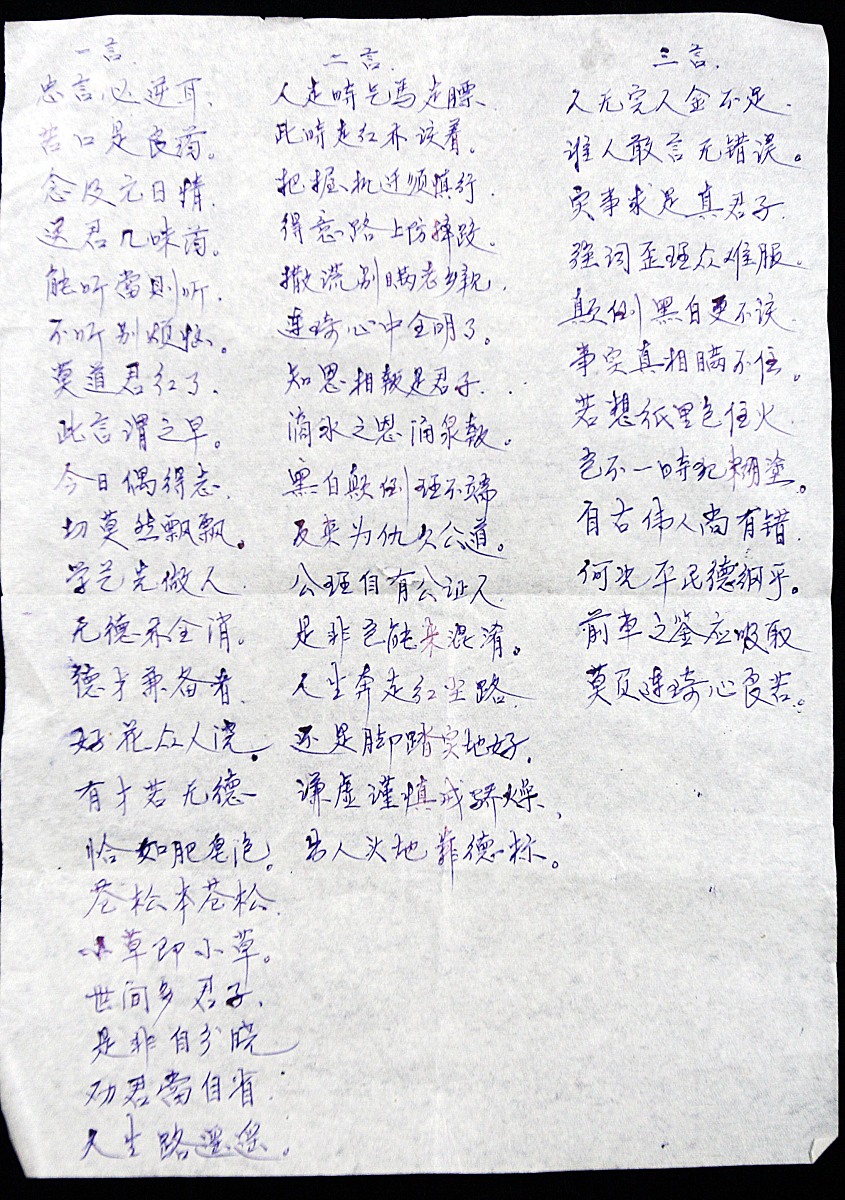 一言.
忠言必逆耳、
苦口是良药。
念及元日情.
送君几味药。
能听當则听.
不听别烦恼。
莫道君红了.
此言谓之早。
今日偶得志.
切莫然飘飘。
学艺先做人.
无德不全消。
德才兼备者.
好花众人浇。
有才若无德
恰如肥皂泡。
苍松本苍松.
小草即小草。
世间多君子.
是非自分晓
劝君當自省.
人生路遥遥。
二言.
人走时气馬走膘.
此時走红亦该着。
把握机迁须慎行.
得意路上防摔跤。
撒谎别瞒老乡親.
连琦心中全明了。
知恩相報是君子...
滴水之恩涌泉報。
黑白颠倒理不端
反来为仇欠公道。
公理自有公证人
是非岂能来混淆。
人生奔走红尘路.
还是脚踏实地好.
谦虚谨慎戒骄燥.
出人头地靠德标。
三言.
人无完人金不足.
谁人敢言无错误。
实事求是真君子.
强词歪理众难服。
颠倒黑白更不该.
事实真相瞒不住。
若想纸里包住火.
包不一時犯糊塗。
自古伟人尚有错.
何况平民德纲乎。
前車之鉴应吸取
莫负连琦心良苦。